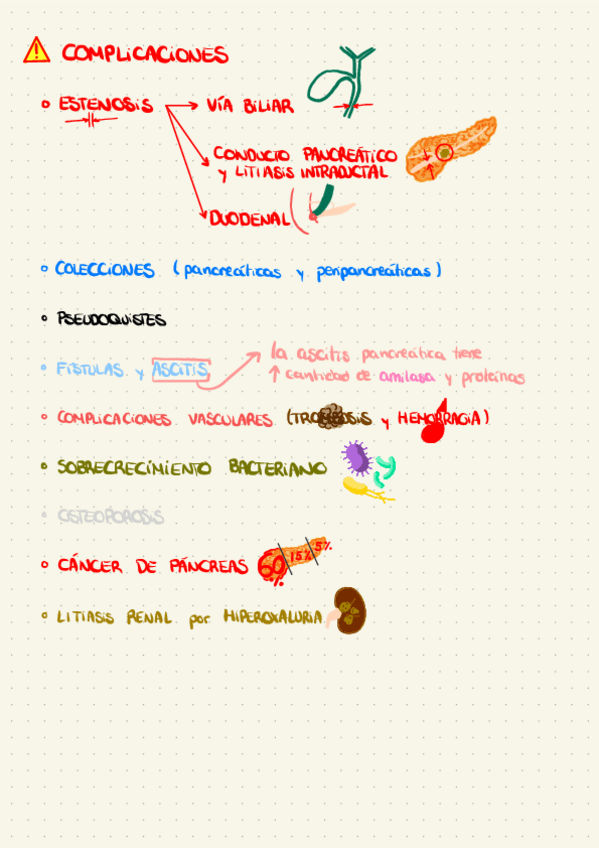 COMPLICACIONES
ESTENOSIS → VÍA BILIAR
CONDUCTO PANCREÁTICO
y LITIASIS INTRADUCTAL
DUODENAL
COLECCIONES (pancreáticas y peripancreáticas)
PSEUDOQUISTES
la ascitis pancreática tiene
FÍSTULAS y ASCITIS
↑ cantidad de amilasa y proteínas
COMPLICACIONES VASCULARES (TROMBOSIS y HEMORRAGIA)
SOBRECRECIMIENTO BACTERIANO
OSTEOPOROSIS
CÁNCER DE PÁNCREAS 60% 15% 5%
LITIASIS RENAL por HIPEROXALURIA